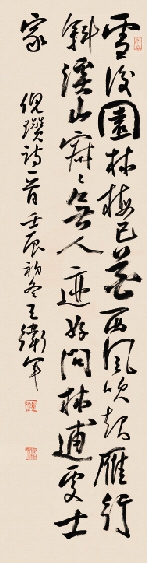 雪後園林梅已花西風吹起雁行
斜溪山寂〻無人迹好問林逋處士
家 倪瓚詩一首壬辰初冬王衛軍